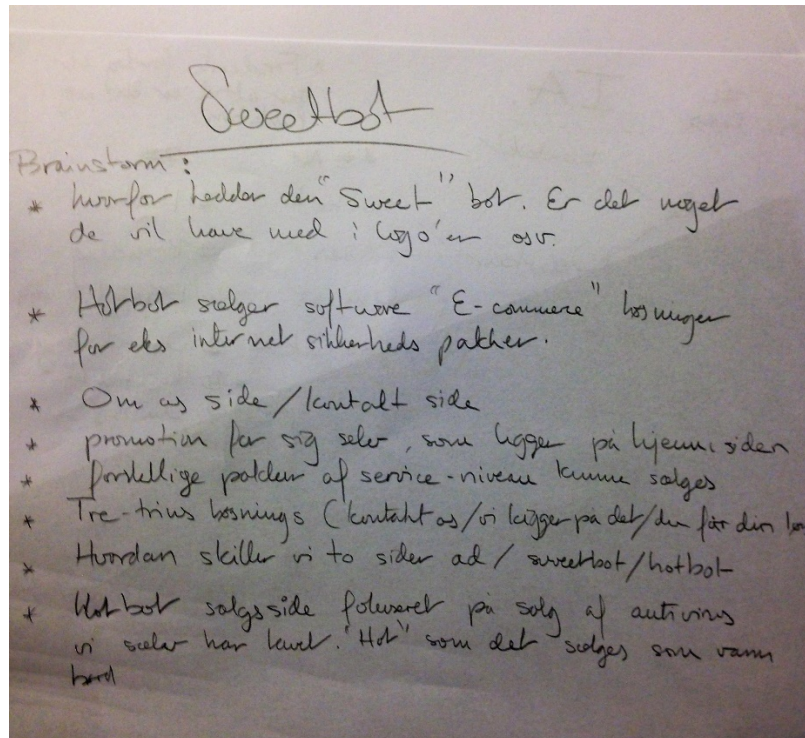 Sweetbot
Brainstorm :
* hvorfor hedder den "Sweet" bot. Er det noget
de vil have med i logo'en osv.
* Hotbot sælger software "E-commerce" løsninger
for eks internet sikkerheds pakker.
* Om os side / kontakt side
* promotion for sig selv, som ligger på hjemmesiden
* forskellige pakker af service-niveau kunne sælges
* Tre-trins løsnings (kontakt os/vi kigger på det/du får din
* Hvordan skiller vi to sider ad / sweetbot/hotbot
* Hotbot salgsside fokuseret på salg af antivirus
vi selv har lavet. "Hot" som det sælges som varm
brød